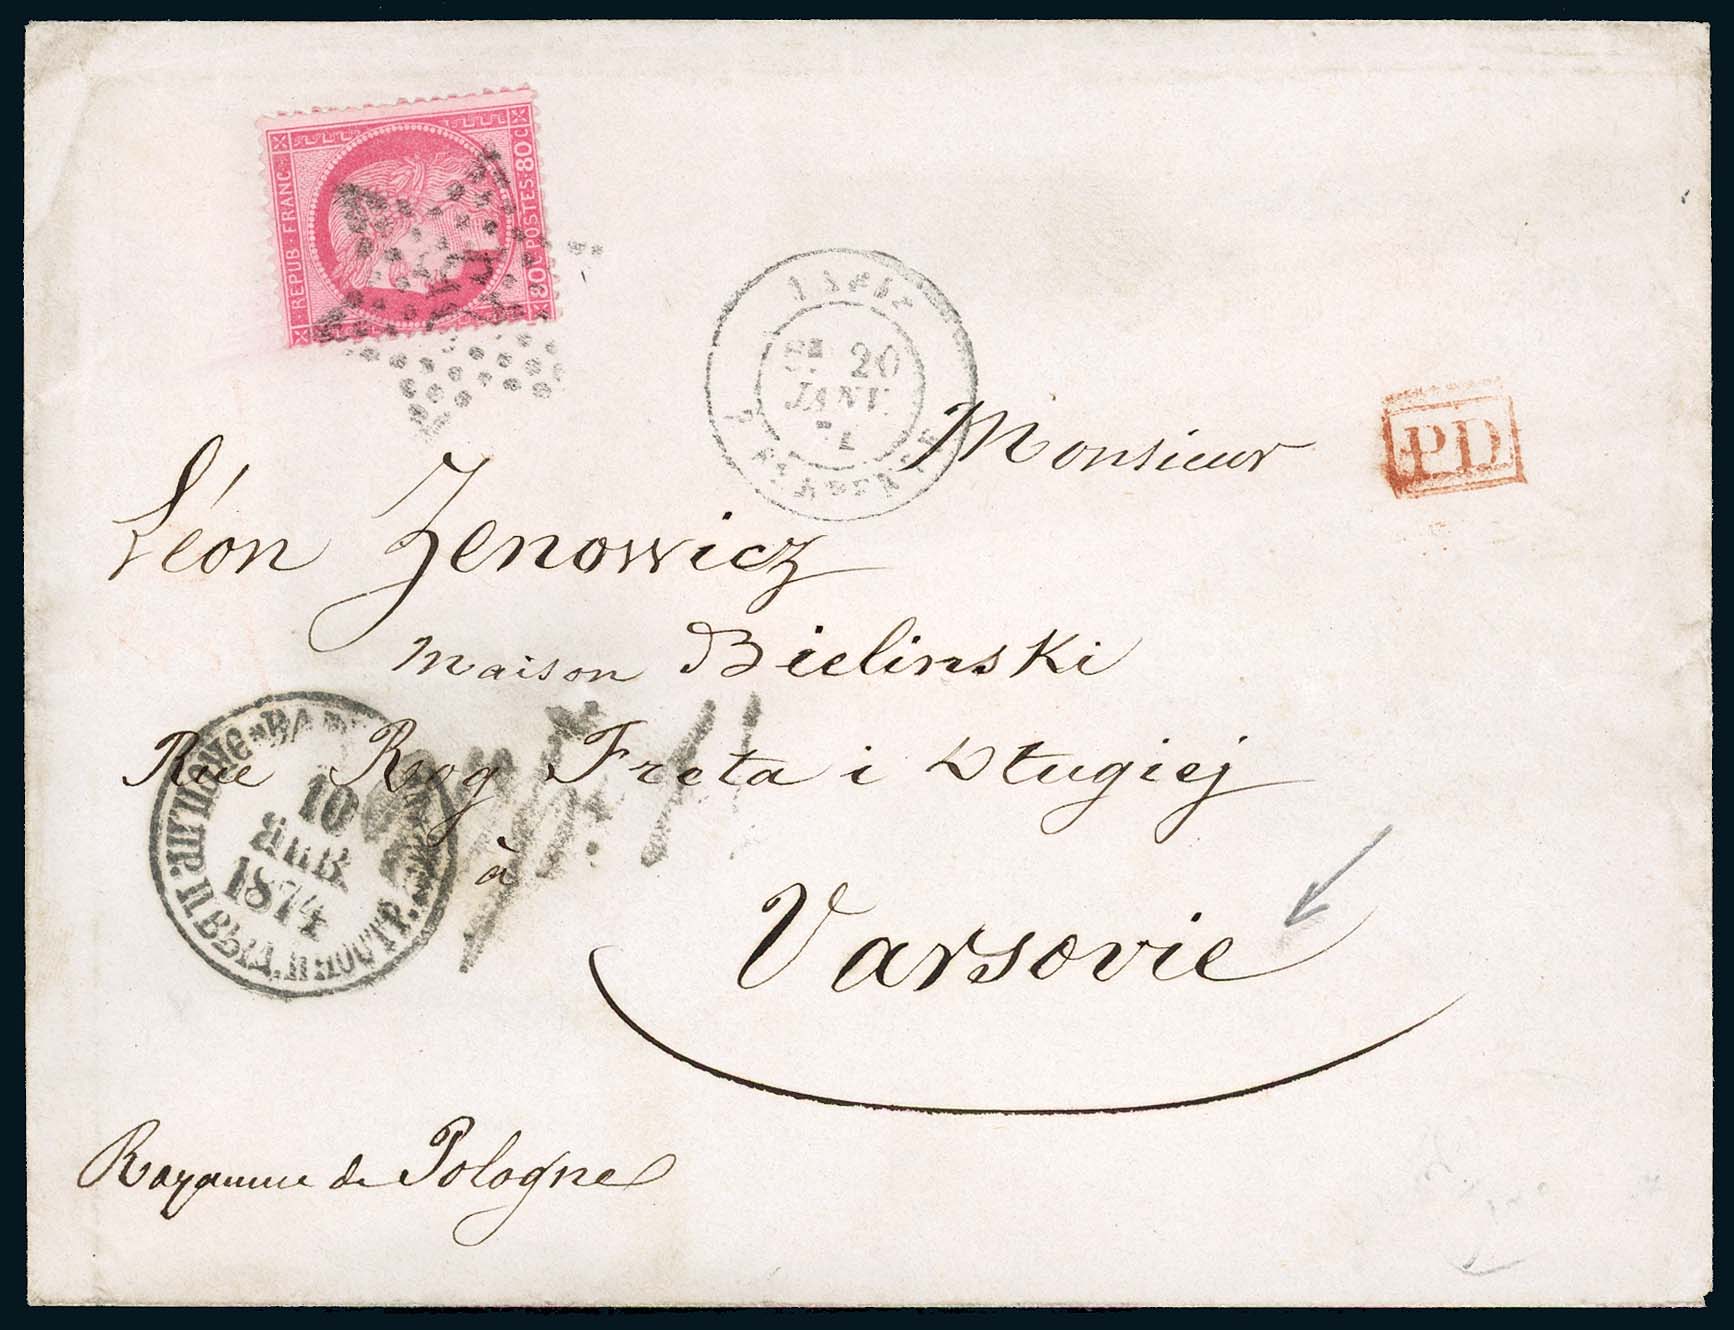 REPUB · FRANC.
80c POSTES 80c
20
JANV.
Monsieur
PD
Léon Zenowicz
maison Bielinski
Rue Rog Freta i Długiej
à
Varsovie
10
ЯНВ
1874
Royaume de Pologne